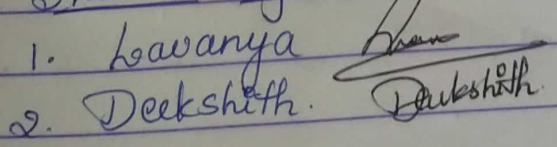 1. Lavanya
2. Deekshith. Deekshith.